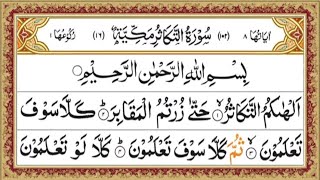 اٰیَاتُهَا ۸ (۱۰۲) سُوْرَةُ التَّكَاثُرِ مَكِّیَّةٌ (۱۶) رُكُوْعُهَا ۱
بِسْمِ اللّٰهِ الرَّحْمٰنِ الرَّحِیْمِ
اَلْهٰىكُمُ التَّكَاثُرُ ۙ حَتّٰى زُرْتُمُ الْمَقَابِرَ ؕ كَلَّا سَوْفَ
تَعْلَمُوْنَ ۙ ثُمَّ كَلَّا سَوْفَ تَعْلَمُوْنَ ؕ كَلَّا لَوْ تَعْلَمُوْنَ